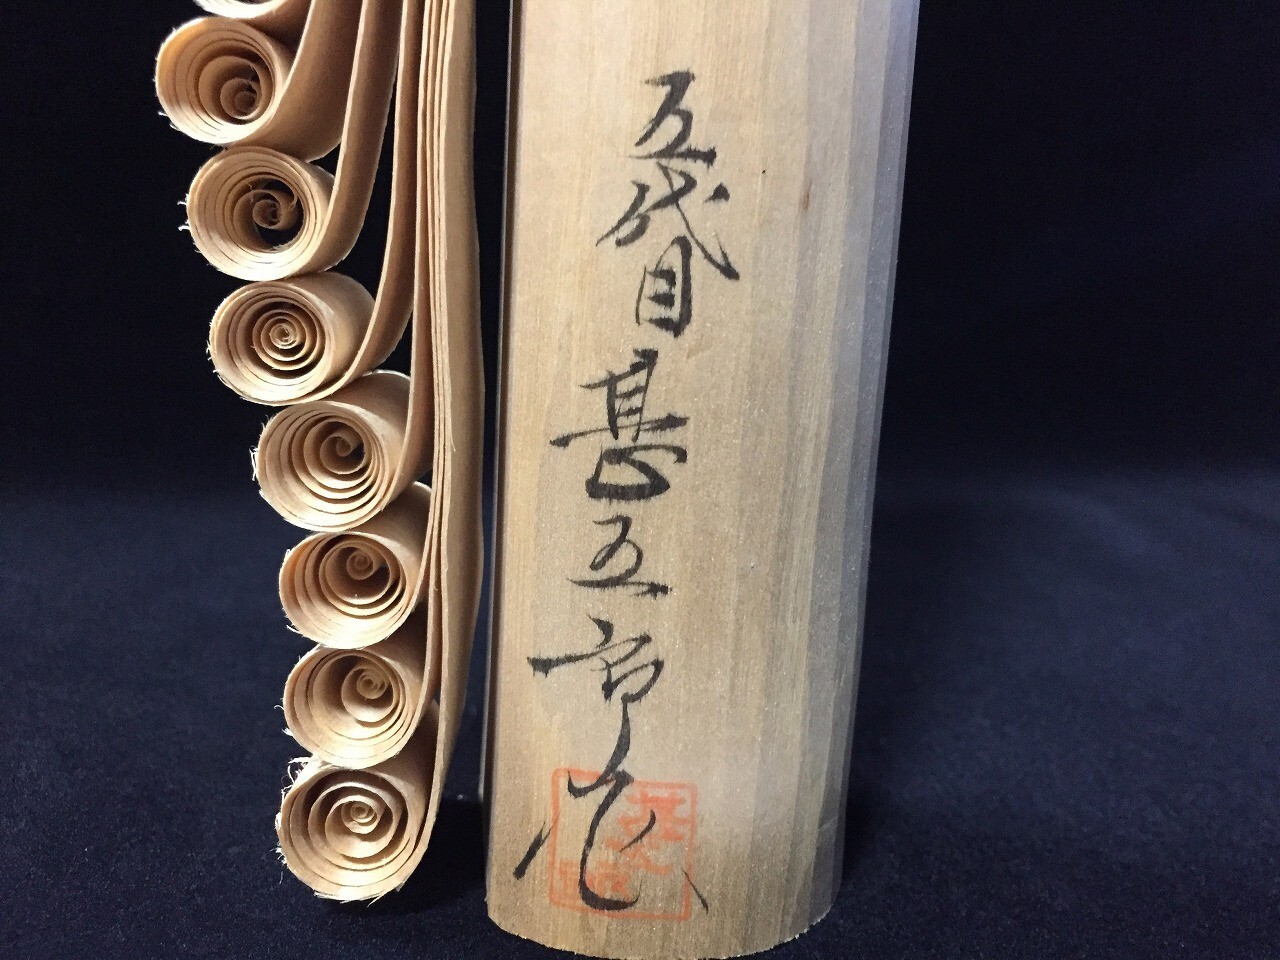 五代目甚五郎作